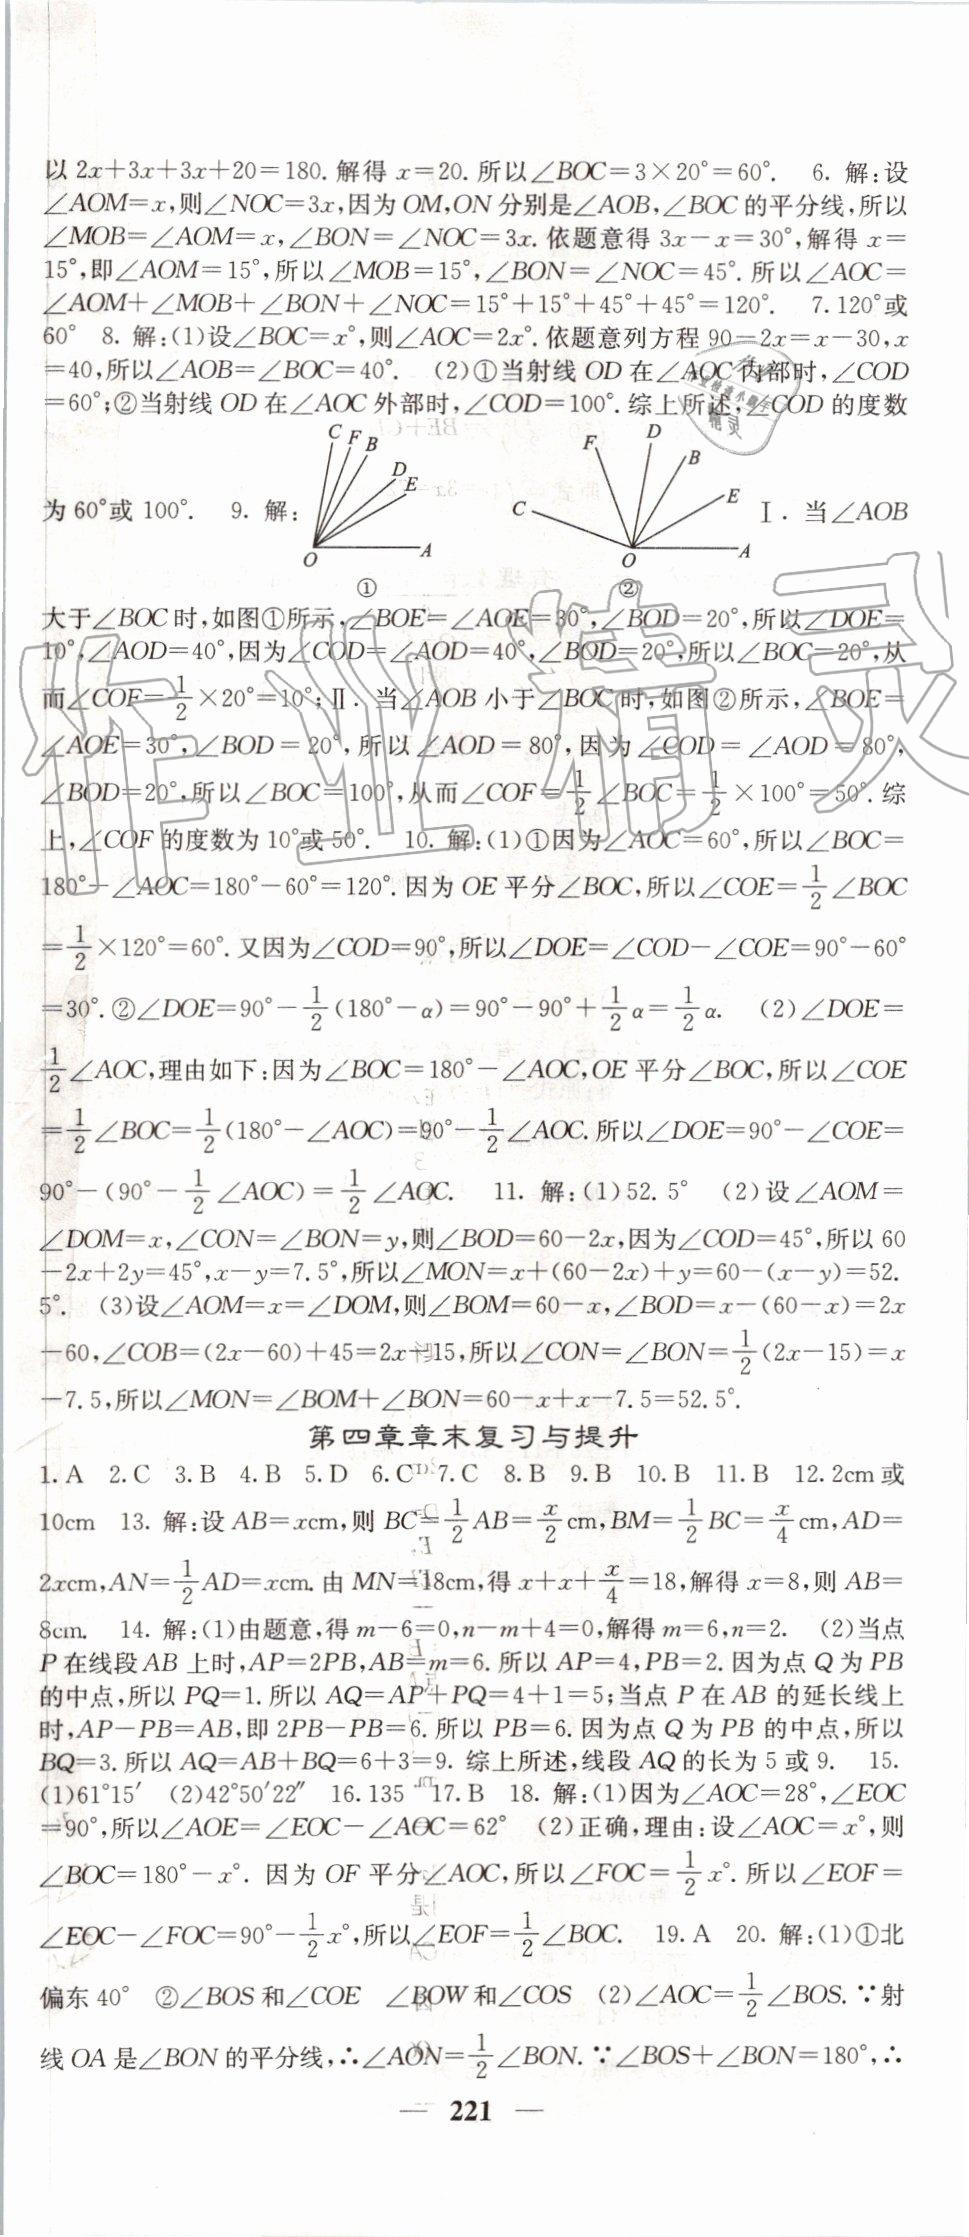 以 2x+3x+3x+20=180. 解得 x=20. 所以∠BOC=3×20°=60°. 6. 解:设
∠AOM=x,则∠NOC=3x,因为 OM,ON 分别是∠AOB,∠BOC 的平分线,所以
∠MOB=∠AOM=x,∠BON=∠NOC=3x. 依题意得 3x-x=30°,解得 x=
15°,即∠AOM=15°,所以∠MOB=15°,∠BON=∠NOC=45°. 所以∠AOC=
∠AOM+∠MOB+∠BON+∠NOC=15°+15°+45°+45°=120°. 7. 120°或
60° 8. 解:(1)设∠BOC=x°,则∠AOC=2x°. 依题意列方程 90-2x=x-30,x
=40,所以∠AOB=∠BOC=40°. (2)①当射线 OD 在∠AOC 内部时,∠COD
=60°;②当射线 OD 在∠AOC 外部时,∠COD=100°. 综上所述,∠COD 的度数
为 60°或 100°. 9. 解: C F B D E O A ① F D B C E O A ② Ⅰ. 当∠AOB
大于∠BOC 时,如图①所示,∠BOE=∠AOE=30°,∠BOD=20°,所以∠DOE=
10°,∠AOD=40°,因为∠COD=∠AOD=40°,∠BOD=20°,所以∠BOC=20°,从
而∠COF=1/2×20°=10°;Ⅱ. 当∠AOB 小于∠BOC 时,如图②所示,∠BOE=
∠AOE=30°,∠BOD=20°,所以∠AOD=80°,因为∠COD=∠AOD=80°,
∠BOD=20°,所以∠BOC=100°,从而∠COF=1/2∠BOC=1/2×100°=50°. 综
上,∠COF 的度数为 10°或 50°. 10. 解:(1)①因为∠AOC=60°,所以∠BOC=
180°-∠AOC=180°-60°=120°. 因为 OE 平分∠BOC,所以∠COE=1/2∠BOC
=1/2×120°=60°. 又因为∠COD=90°,所以∠DOE=∠COD-∠COE=90°-60°
=30°. ②∠DOE=90°-1/2(180°-α)=90°-90°+1/2α=1/2α. (2)∠DOE=
1/2∠AOC,理由如下:因为∠BOC=180°-∠AOC,OE 平分∠BOC,所以∠COE
=1/2∠BOC=1/2(180°-∠AOC)=90°-1/2∠AOC. 所以∠DOE=90°-∠COE=
90°-(90°-1/2∠AOC)=1/2∠AOC. 11. 解:(1)52. 5° (2)设∠AOM=
∠DOM=x,∠CON=∠BON=y,则∠BOD=60-2x,因为∠COD=45°,所以 60
-2x+2y=45°,x-y=7. 5°,所以∠MON=x+(60-2x)+y=60-(x-y)=52.
5°. (3)设∠AOM=x=∠DOM,则∠BOM=60-x,∠BOD=x-(60-x)=2x
-60,∠COB=(2x-60)+45=2x-15,所以∠CON=∠BON=1/2(2x-15)=x
-7. 5,所以∠MON=∠BOM+∠BON=60-x+x-7. 5=52. 5°.
第四章章末复习与提升
1. A 2. C 3. B 4. B 5. D 6. C 7. C 8. B 9. B 10. B 11. B 12. 2cm 或
10cm 13. 解:设 AB=xcm,则 BC=1/2AB=x/2cm,BM=1/2BC=x/4cm,AD=
2xcm,AN=1/2AD=xcm. 由 MN=18cm,得 x+x+x/4=18,解得 x=8,则 AB=
8cm. 14. 解:(1)由题意,得 m-6=0,n-m+4=0,解得 m=6,n=2. (2)当点
P 在线段 AB 上时,AP=2PB,AB=m=6. 所以 AP=4,PB=2. 因为点 Q 为 PB
的中点,所以 PQ=1. 所以 AQ=AP+PQ=4+1=5;当点 P 在 AB 的延长线上
时,AP-PB=AB,即 2PB-PB=6. 所以 PB=6. 因为点 Q 为 PB 的中点,所以
BQ=3. 所以 AQ=AB+BQ=6+3=9. 综上所述,线段 AQ 的长为 5 或 9. 15.
(1)61°15′ (2)42°50′22″ 16. 135 17. B 18. 解:(1)因为∠AOC=28°,∠EOC
=90°,所以∠AOE=∠EOC-∠AOC=62° (2)正确,理由:设∠AOC=x°,则
∠BOC=180°-x°. 因为 OF 平分∠AOC,所以∠FOC=1/2x°. 所以∠EOF=
∠EOC-∠FOC=90°-1/2x°,所以∠EOF=1/2∠BOC. 19. A 20. 解:(1)①北
偏东 40° ②∠BOS 和∠COE ∠BOW 和∠COS (2)∠AOC=1/2∠BOS. ∵射
线 OA 是∠BON 的平分线,∴∠AON=1/2∠BON. ∵∠BOS+∠BON=180°,∴
— 221 —
作业精灵